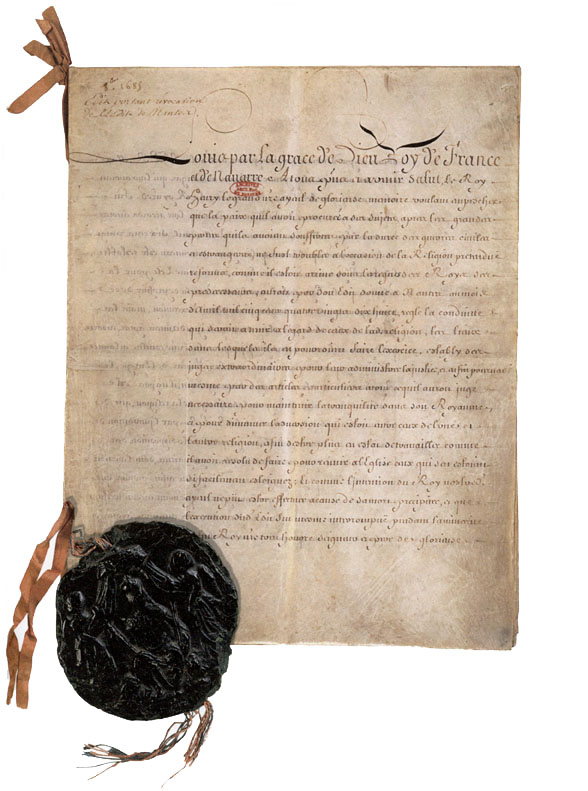 8bre 1685
Edit portant revocation
de l'Edit de Nantes
Louis par la grace de Dieu Roy de France
et de Navarre A tous presens et a venir Salut. le Roy
Henry le grand nre ayeul de glorieuse memoire voulant empescher
que la paix qu'il avoit procurée a ses sujets apres les grandes
pertes qu'ils avoient souffertes par la durée des guerres civiles
et estrangeres, ne fust troublée a l'occasion de la Religion pretendue
reformée, comme il estoit arrivé sous les regnes des Roys ses
predecesseurs, auroit par son Edit donné a Nantes au mois
d'avril mil cinq cens quatre vingts dix huict, reglé la conduitte
qui seroit a tenir a l'egard de ceux de lad. religion, les lieux
dans lesquels ils en pourroient faire l'exercice, estably des
juges extraordinaires pour leur administrer la justice, et enfin pourveu
mesme par des articles particuliers a tout ce qu'il auroit jugé
necessaire pour maintenir la tranquilité dans son Royaume
et pour diminuer l'aversion qui estoit entre ceux de l'une et
l'autre religion, afin d'estre plus en estat de travailler comme
il avoit resolu de faire pour reunir a l'Eglise ceux qui s'en estoient
si facilement esloignez; Et comme l'intention du Roy
ayeul ne put estre effectuée a cause de sa mort precipitée, et que
l'execution dud. Edit fut mesme interrompue pendant la minorité
du feu Roy nre tres honoré seigneur et pere de glorieuse